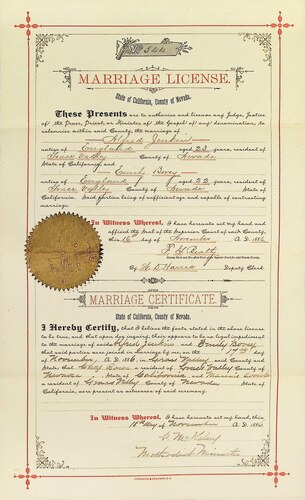 No 544
MARRIAGE LICENSE.
State of California, County of Nevada.
These Presents are to authorize and license any Judge, Justice
of the Peace, Priest, or Minister of the Gospel of any denomination, to
solemnize within said County, the marriage of
Alfred
native of England aged 23 years, resident of
Grass Valley County of Nevada
State of California, and
Emily
native of England aged 22 years, resident of
Grass Valley County of Nevada
State of California. Said parties being of sufficient age and capable of contracting
marriage.
In Witness Whereof, I have hereunto set my hand and
affixed the Seal of the Superior Court of said County,
this 16 day of November A. D. 1886
By Deputy Clerk
MARRIAGE CERTIFICATE.
State of California, County of Nevada.
I Hereby Certify, that I believe the facts stated in the above license
to be true, and that upon due inquiry, there appears to be no legal impediment
to the marriage of said Alfred and Emily
that said parties were joined in Marriage by me, on the 17th day
of November, A. D. 1886, in Grass Valley said County and
State; that a resident of Grass Valley County of
Nevada State of California and
a resident of Grass Valley County of Nevada State of
California, are present as witnesses of said ceremony.
In Witness Whereof, I have hereunto set my hand, this
18th day of November A. D. 1886
Methodist Minister